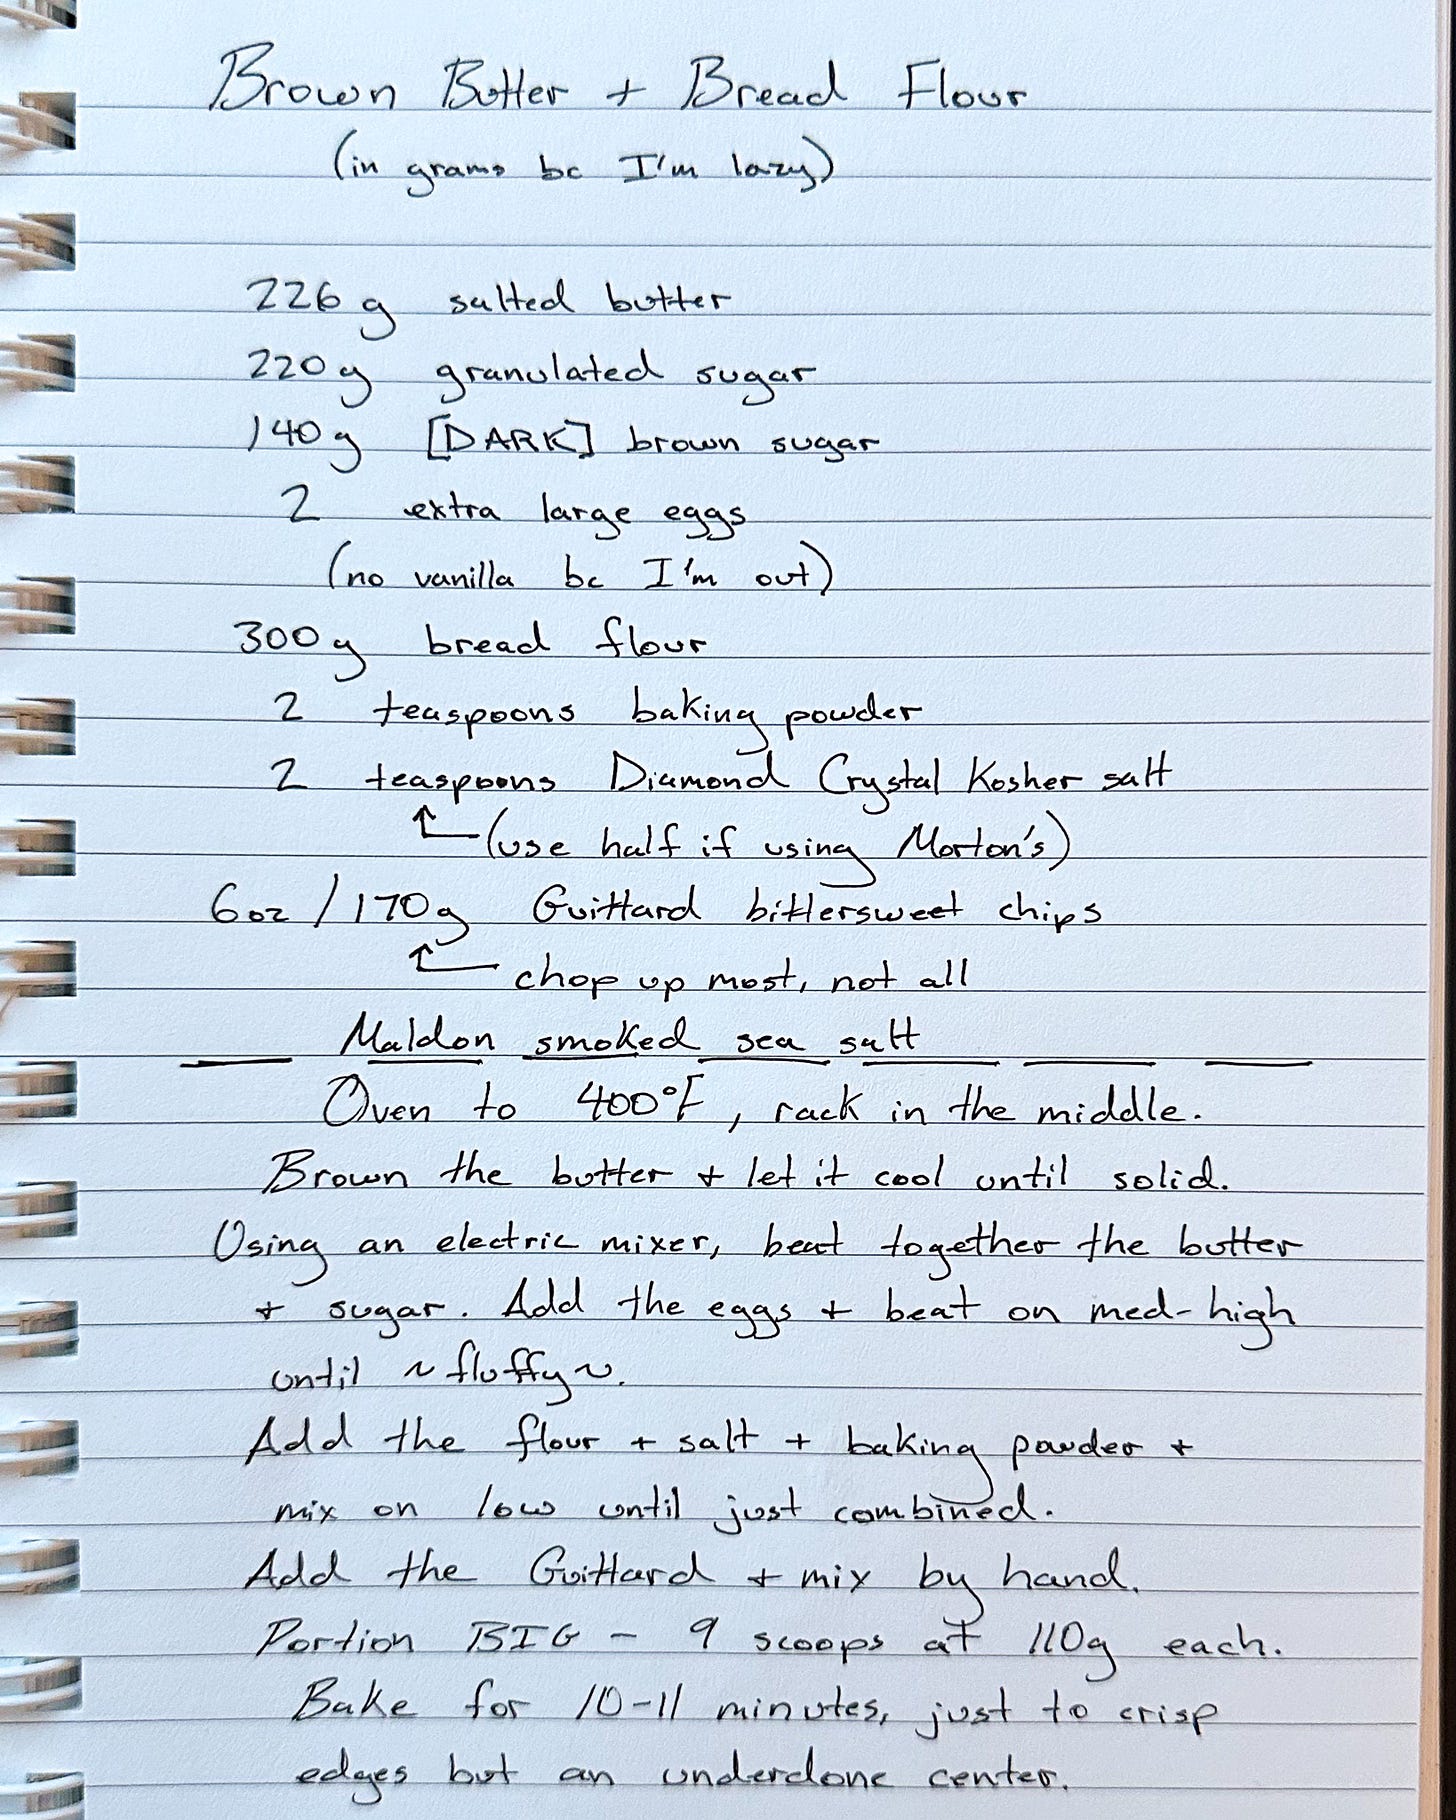 Brown Butter + Bread Flour
(in grams bc I'm lazy)
226 g salted butter
220 g granulated sugar
140 g [DARK] brown sugar
2 extra large eggs
(no vanilla bc I'm out)
300 g bread flour
2 teaspoons baking powder
2 teaspoons Diamond Crystal Kosher salt
(use half if using Morton's)
6oz / 170g Guittard bittersweet chips
chop up most, not all
Maldon smoked sea salt
Oven to 400°F, rack in the middle.
Brown the butter + let it cool until solid.
Using an electric mixer, beat together the butter
+ sugar. Add the eggs + beat on med-high
until ~fluffy~.
Add the flour + salt + baking powder +
mix on low until just combined.
Add the Guittard + mix by hand.
Portion BIG - 9 scoops at 110g each.
Bake for 10-11 minutes, just to crisp
edges but an underdone center.